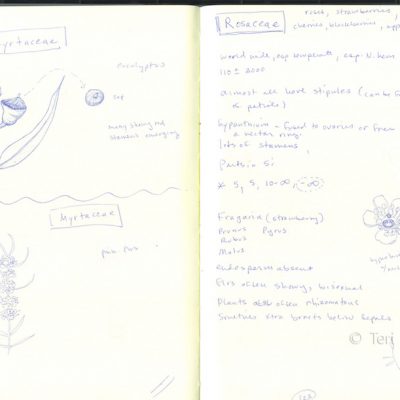 Myrtaceae
eucalyptus
cap
many showy red
stamens emerging
Myrtaceae
Rosaceae
roses, strawberries,
cherries, blackberries, app
world wide, esp. temperate, esp. N. hem
110 ± 3000
almost all have stipules (can be
& petiole)
hypanthium - fused to ovaries or free
a nectar ring.
lots of stamens,
Parts in 5:
* 5, 5, 10-∞, -∞
Fragaria (strawberry)
Prunus Pyrus
Rubus
Malus
endosperm absent
Flrs often showy, bisexual
Plants often rhizomatous
Sometimes xtra bracts below sepals
© Teri